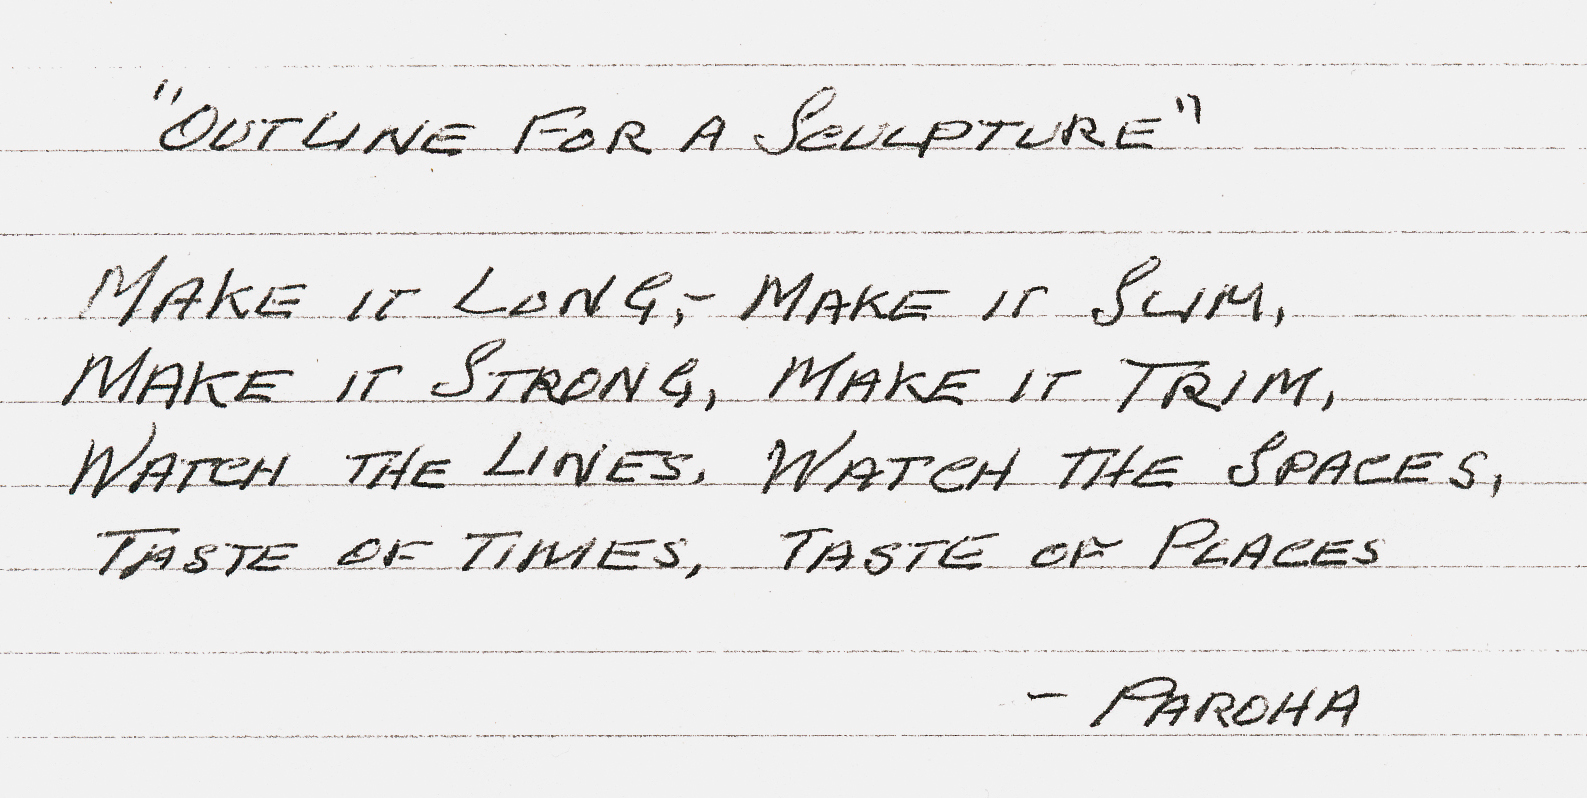 "OUTLINE FOR A SCULPTURE"
MAKE IT LONG,- MAKE IT SLIM,
MAKE IT STRONG, MAKE IT TRIM,
WATCH THE LINES, WATCH THE SPACES,
TASTE OF TIMES, TASTE OF PLACES
- PAROHA